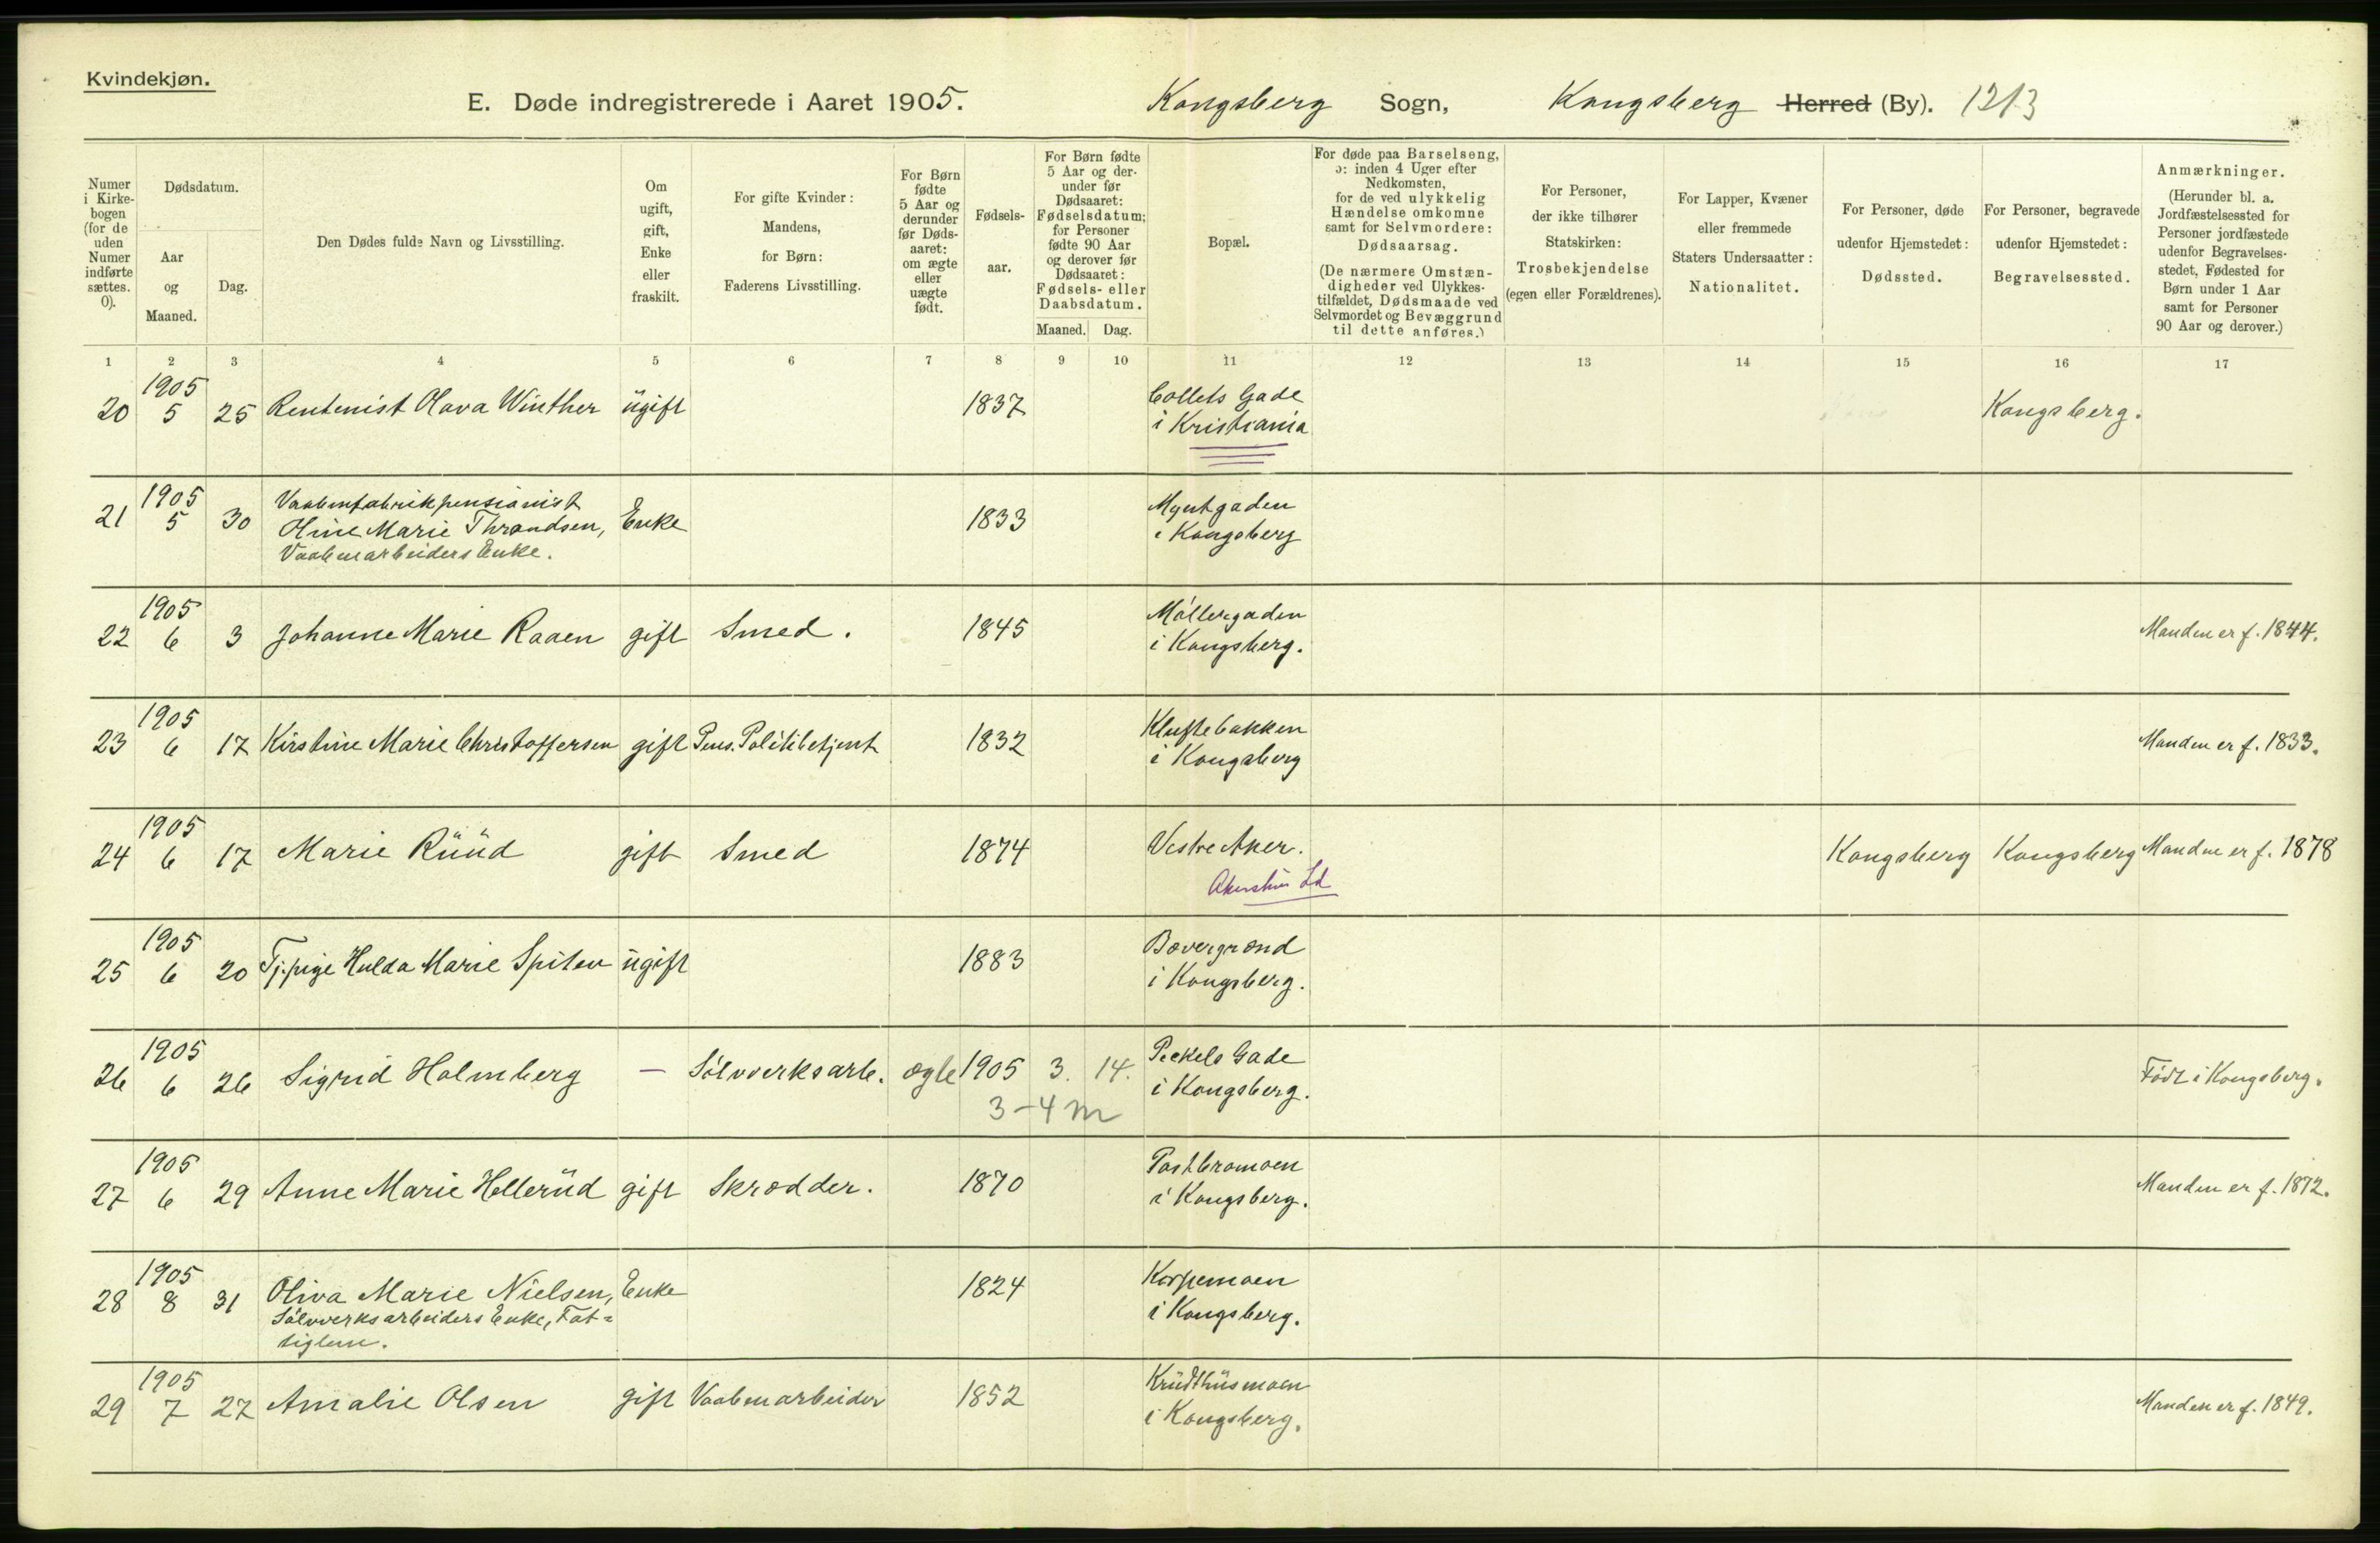 Kvindekjøn.
E. Døde indregistrerede i Aaret 1905. Kongsberg Sogn, Kongsberg Herred (By). 1213
Numer i Kirkebogen (for de uden Numer indførte sættes. 0).
Dødsdatum.
Aar og Maaned.
Dag.
Den Dødes fulde Navn og Livsstilling.
Om ugift, gift, Enke eller fraskilt.
For gifte Kvinder: Mandens, for Børn: Faderens Livsstilling.
For Børn fødte 5 Aar og derunder før Dødsaaret: om ægte eller uægte født.
Fødselsaar.
For Børn fødte 5 Aar og derunder før Dødsaaret: Fødselsdatum; for Personer fødte 90 Aar og derover før Dødsaaret: Fødsels- eller Daabsdatum.
Maaned. Dag.
Bopæl.
For døde paa Barselseng, ɔ: inden 4 Uger efter Nedkomsten, for de ved ulykkelig Hændelse omkomne samt for Selvmordere: Dødsaarsag.
(De nærmere Omstændigheder ved Ulykkestilfældet, Dødsmaade ved Selvmordet og Bevæggrund til dette anføres.)
For Personer, der ikke tilhører Statskirken: Trosbekjendelse (egen eller Forældrenes).
For Lapper, Kvæner eller fremmede Staters Undersaatter: Nationalitet.
For Personer, døde udenfor Hjemstedet: Dødssted.
For Personer, begravede udenfor Hjemstedet: Begravelsessted.
Anmærkninger.
(Herunder bl. a. Jordfæstelsessted for Personer jordfæstede udenfor Begravelsesstedet, Fødested for Børn under 1 Aar samt for Personer 90 Aar og derover.)
1 2 3 4 5 6 7 8 9 10 11 12 13 14 15 16 17
20 1905 5 25 Rentenist Olava Winther ugift 1837 Collets Gade i Kristiania Kongsberg.
21 1905 5 30 Vaabenfabrikpensionist Oline Marie Thrandsen, Vaabenarbeiders Enke. Enke 1833 Myntgaden i Kongsberg
22 1905 6 3 Johanne Marie Raaen gift Smed. 1845 Møllergaden i Kongsberg. Manden er f. 1844.
23 1905 6 17 Kirstine Marie Christoffersen gift Pens. Politibetjent 1832 Kluftebakken i Kongsberg Manden er f. 1833.
24 1905 6 17 Marie Ruud gift Smed 1874 Vestre Aker. Akershus Kongsberg Kongsberg Manden er f. 1878
25 1905 6 20 Tj.pige Hulda Marie Spiten ugift 1883 Bævergrænd i Kongsberg.
26 1905 6 26 Sigrid Holmberg — Sølvverksarb. ægte 1905 3. 14. Peckels Gade i Kongsberg. Født i Kongsberg.
3-4 m
27 1905 6 29 Anne Marie Hellerud gift Skrædder. 1870 Postbromoen i Kongsberg. Manden er f. 1872.
28 1905 8 31 Oliva Marie Nielsen, Sølvverksarbeiders Enke, Fattiglem. Enke 1824 Korpemoen i Kongsberg.
29 1905 7 27 Amalie Olsen gift Vaabenarbeider 1852 Krudthusmoen i Kongsberg. Manden er f. 1849.